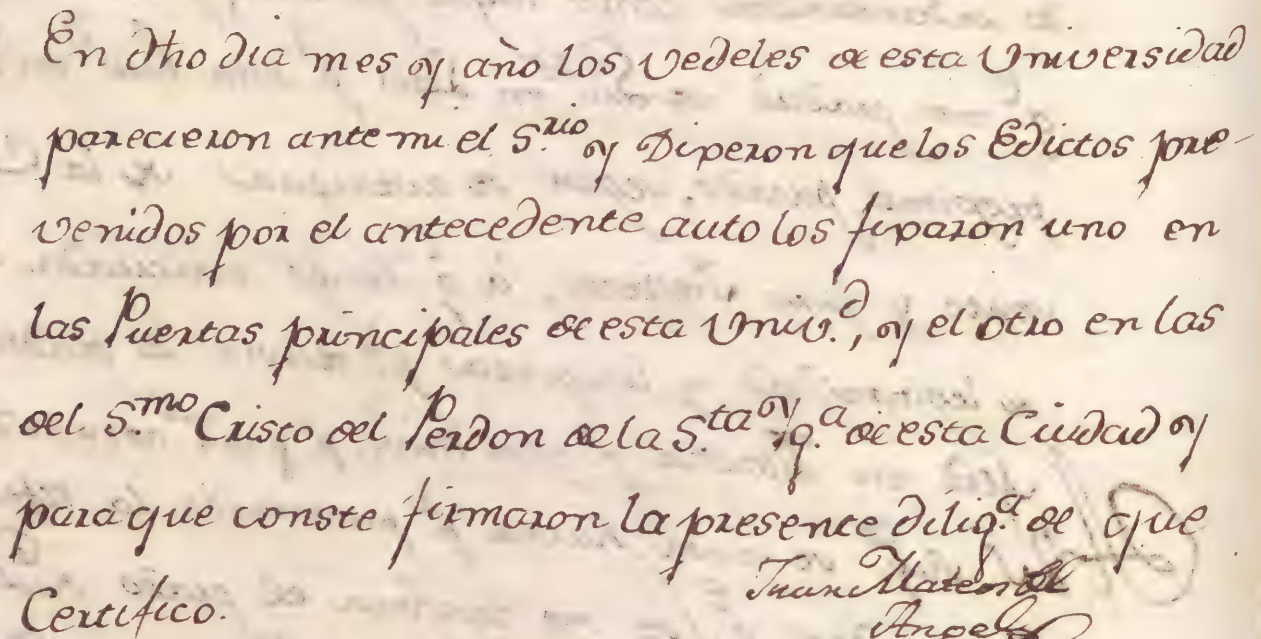 En dho dia mes y año los Vedeles de esta Universidad
parecieron ante mi el S.rio y Dixeron que los Edictos pre-
venidos por el antecedente auto los fixaron uno en
las Puertas principales de esta Univ.d, y el otro en las
del S.mo Cristo del Perdon de la S.ta Yg.a de esta Ciudad y
para que conste firmaron la presente dilig.a de que
Certifico.
Juan Mateo
Angel